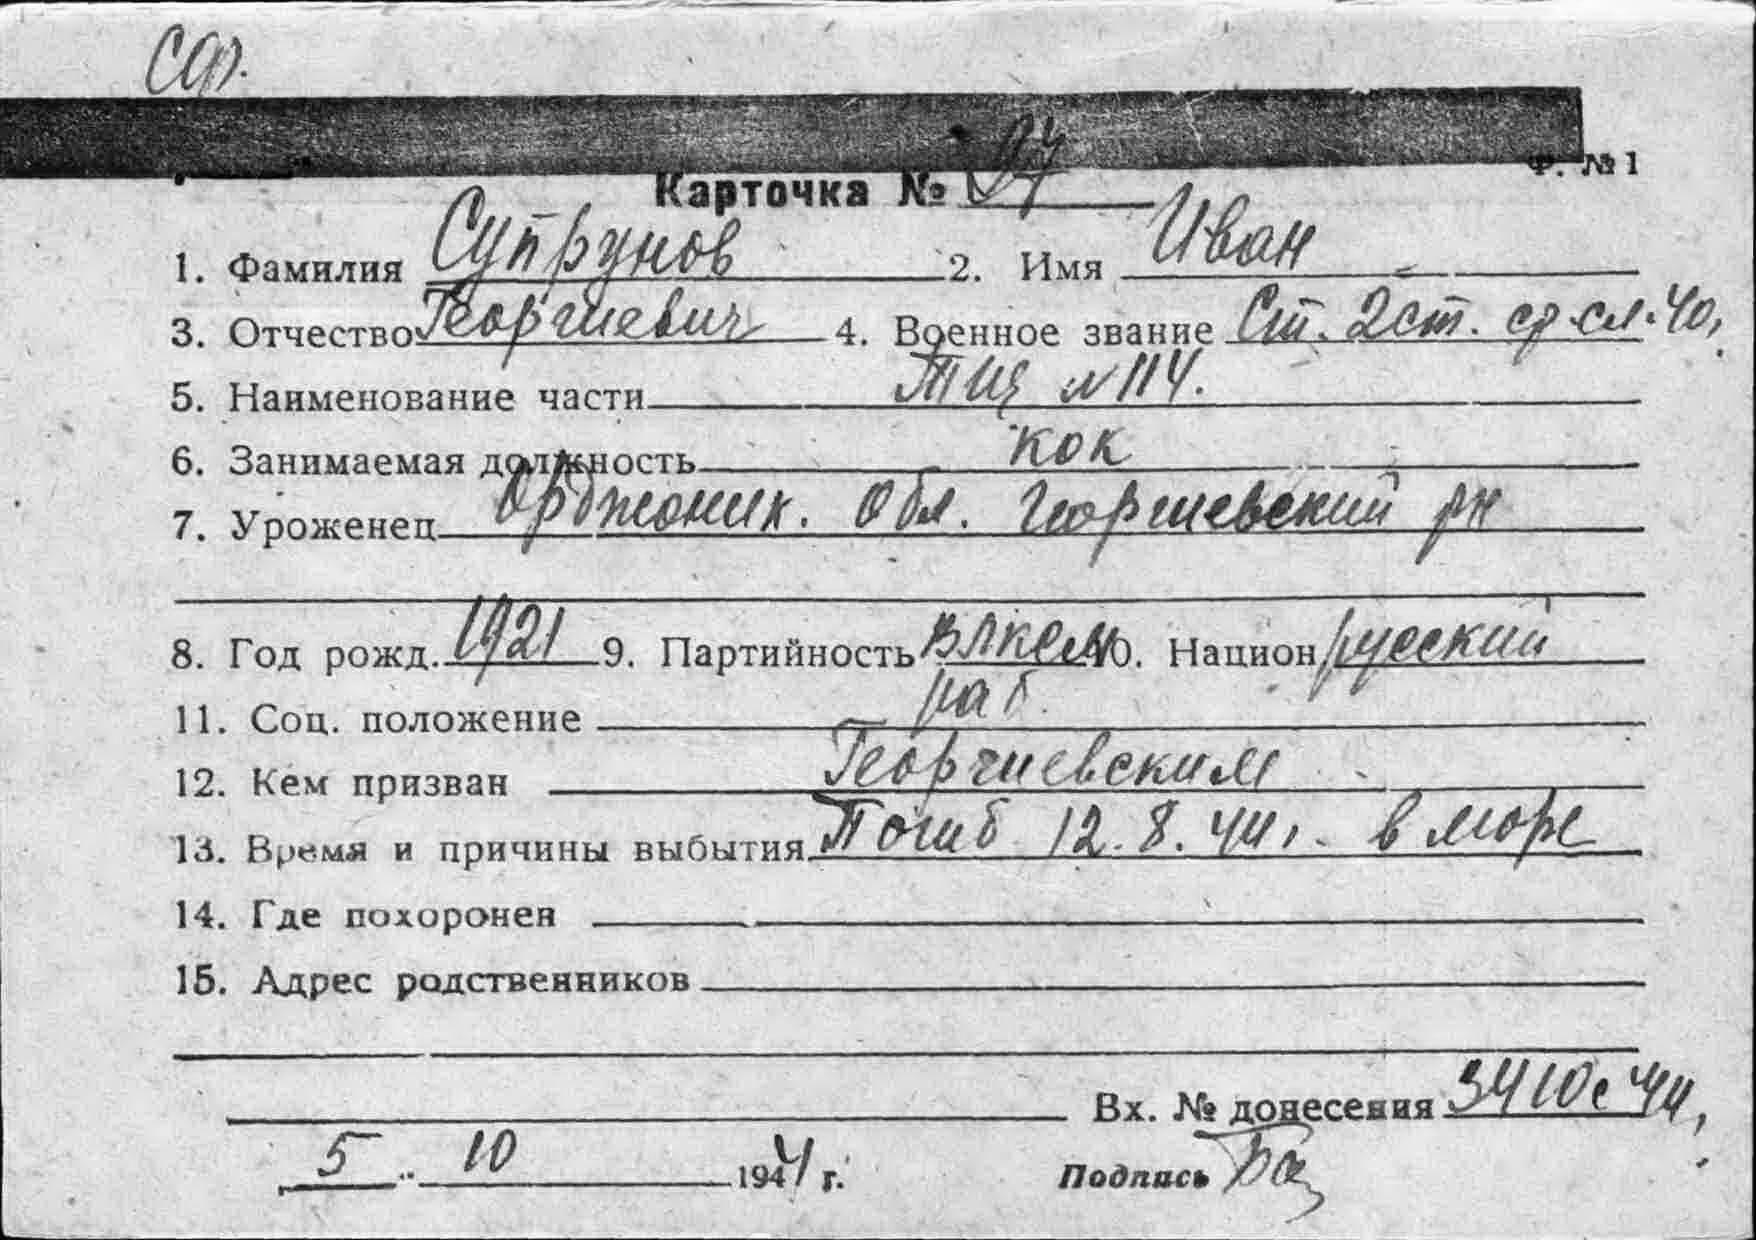 СФ.
Ф. № 1
Карточка № 97
1. Фамилия Супрунов 2. Имя Иван
3. Отчество Георгиевич 4. Военное звание Ст. 2 ст. ср. сл. 40,
5. Наименование части ТЩ № 114.
6. Занимаемая должность кок
7. Уроженец Орджоник. обл. Георгиевский рн
8. Год рожд. 1921 9. Партийность ВЛКСМ 10. Национ русский
11. Соц. положение раб.
12. Кем призван Георгиевским
13. Время и причины выбытия Погиб 12.8.44г. в море
14. Где похоронен
15. Адрес родственников
Вх. № донесения 3410с 44,
5 10 1944 г. Подпись